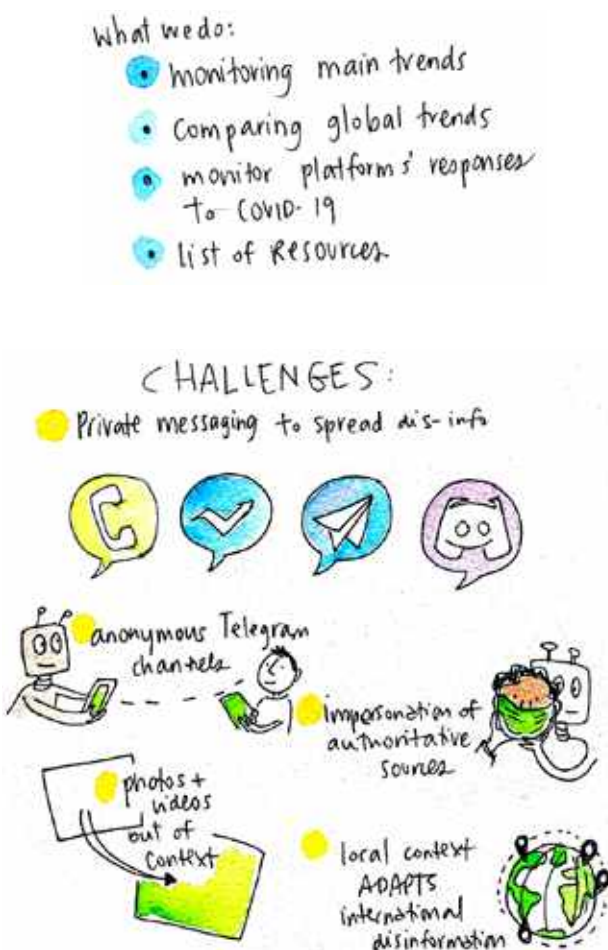 What we do:
monitoring main trends
Comparing global trends
monitor platforms' responses
to COVID-19
list of Resources
CHALLENGES:
Private messaging to spread dis-info
anonymous Telegram
channels
impersonation of
authoritative
sources
photos +
videos
out of
context
local context
ADAPTS
international
disinformation